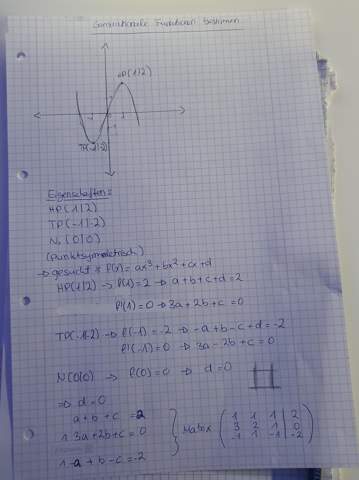 Ganzrationale Funktionen bestimmen
HP(1|2)
TP(-1|-2)
Eigenschaften:
HP(1|2)
TP(-1|-2)
N, (0|0)
(punktsymmetrisch)
→ gesucht: f(x) = ax³+bx²+cx+d
HP(1|2) → f(1)=2 → a+b+c+d=2
f'(1)=0 → 3a+2b+c=0
TP(-1|-2) → f(-1)=-2 → -a+b-c+d=-2
f'(-1)=0 → 3a-2b+c=0
N(0|0) → f(0)=0 → d=0
⇒ d=0
a+b+c=2
1 3a+2b+c=0
1 -a+b-c=-2
Matrix
1 1 1 | 2
3 2 1 | 0
-1 1 -1 | -2